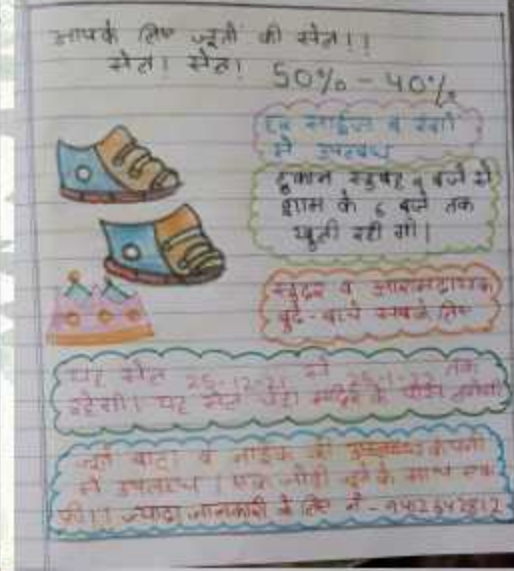 आपके लिए जूतों की सेल!!
सेल! सेल! 50% - 40%
हर साईज व रंगों
में उपलब्ध
दुकान सुबह 9 बजे से
शाम के 6 बजे तक
खुली रही गी।
सुंदर व आरामदायक
बुढे - बच्चे सबके लिए
यह सेल 25-12-21 से तक
रहेगी। यह सेल मंदिर के पीछे लगेगी
जूते बाटा व नाईक की कंपनी
में उपलब्ध। एक जोड़ी जूते के साथ एक
फ्री।। ज्यादा जानकारी के लिए नं - 9462642812